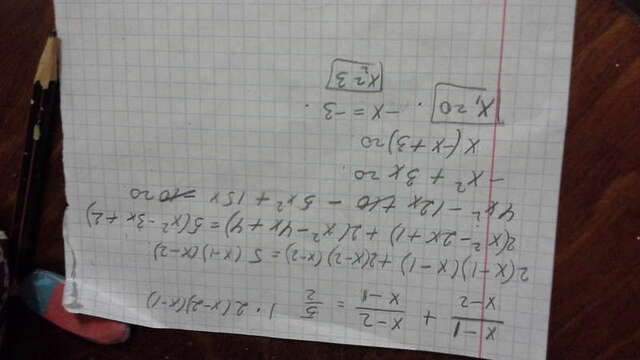 x-1/x-2 + x-2/x-1 = 5/2 | · 2(x-2)(x-1)
2(x-1)(x-1) + 2(x-2)(x-2) = 5(x-1)(x-2)
2(x²-2x+1) + 2(x²-4x+4) = 5(x²-3x+2)
4x² - 12x +10 - 5x² + 15x -10=0
-x² + 3x = 0
x(-x+3)=0
x₁=0 · -x = -3 ·
x₂=3